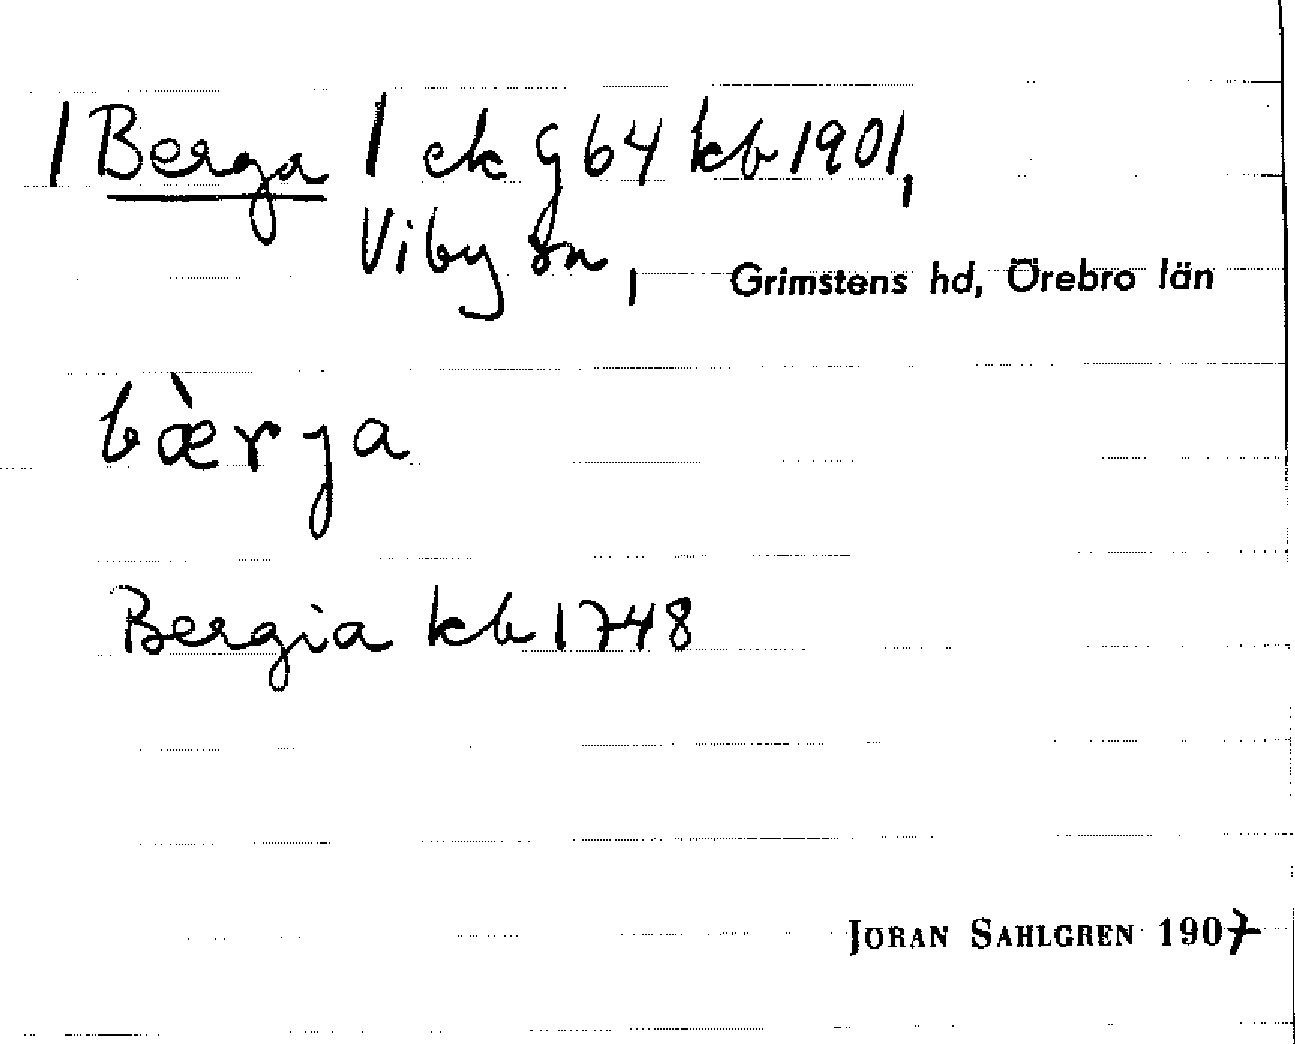 | Berga | ek g 64 kb 1901,
Viby sn, Grimstens hd, Örebro län
bæ̀rja
Bergia kb 1748
JÖRAN SAHLGREN 1907